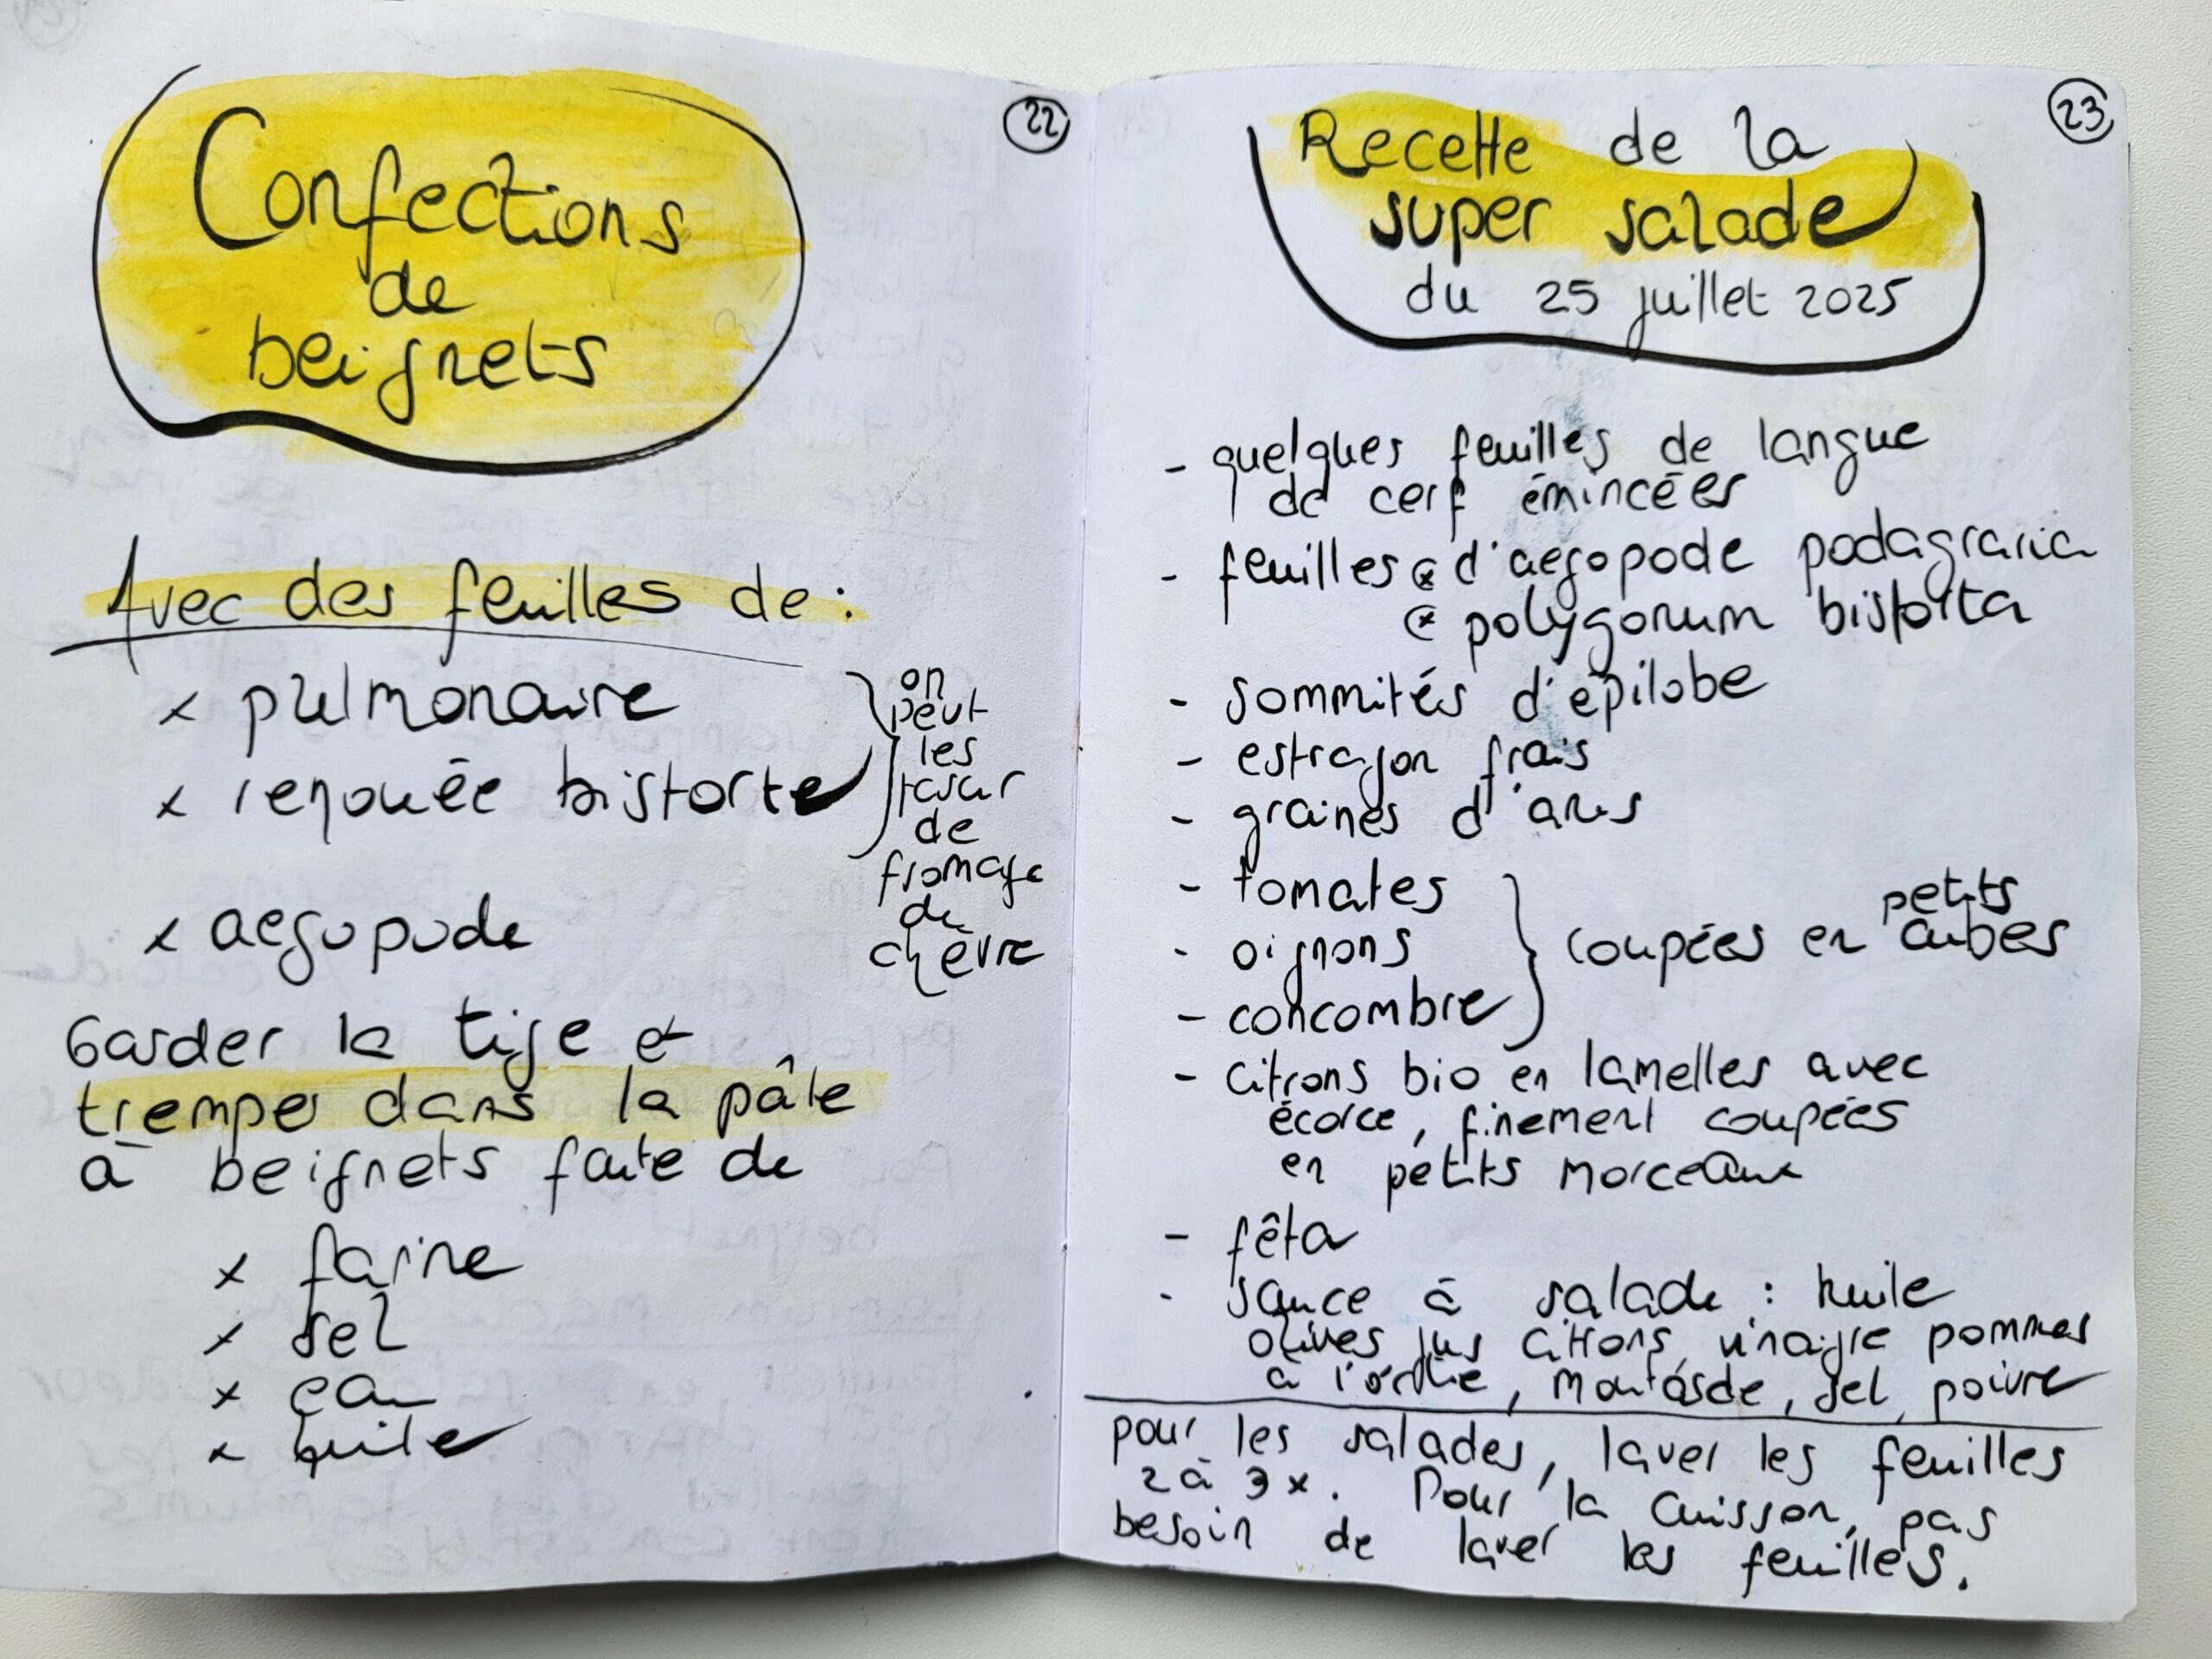 22
Confections
de
beignets
Avec des feuilles de :
x pulmonaire
x renouée bistorte
on
peut
les
de
fromage
de
chèvre
x aegopode
Garder la tige et
tremper dans la pâte
à beignets faite de
x farine
x sel
x eau
x huile
23
Recette de la
super salade
du 25 juillet 2025
- quelques feuilles de langue
de cerf émincées
- feuilles d'aegopode podagraria
polygonum bistorta
- sommités d'épilobe
- estragon frais
- graines d'anis
- tomates
- oignons
- concombre
coupées en petits
cubes
- citrons bio en lamelles avec
écorce, finement coupées
en petits morceaux
- fêta
- sauce à salade : huile
olives jus citrons vinaigre pommes
à l'ortie, moutarde, sel, poivre
pour les salades, laver les feuilles
2 à 3 x. Pour la cuisson, pas
besoin de laver les feuilles.